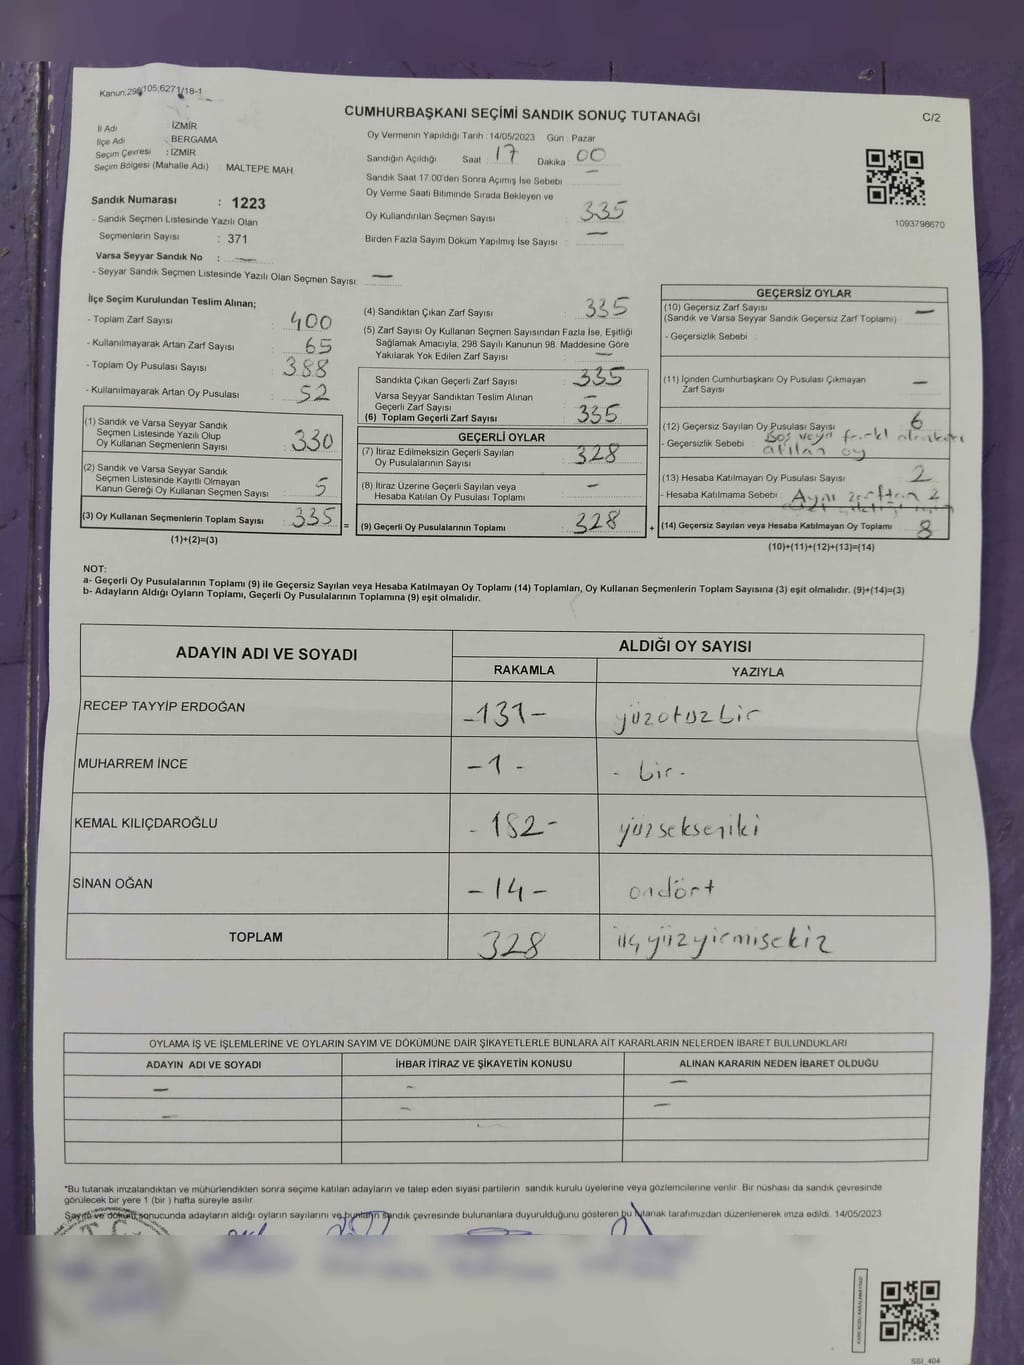 Kanun:298/105,6271/18-1
CUMHURBAŞKANI SEÇİMİ SANDIK SONUÇ TUTANAĞI
C/2
İl Adı İZMİR
İlçe Adı BERGAMA
Seçim Çevresi : İZMİR
Seçim Bölgesi (Mahalle Adı) MALTEPE MAH
Oy Vermenin Yapıldığı Tarih : 14/05/2023 Gün : Pazar
Sandığın Açıldığı Saat : 17 Dakika : 00
Sandık Saat 17:00'den Sonra Açımış İse Sebebi : —
Oy Verme Saati Bitiminde Sırada Bekleyen ve
Oy Kullandırılan Seçmen Sayısı : 335
Birden Fazla Sayım Döküm Yapılmış İse Sayısı : —
1093798670
Sandık Numarası : 1223
- Sandık Seçmen Listesinde Yazılı Olan
Seçmenlerin Sayısı : 371
Varsa Seyyar Sandık No : —
- Seyyar Sandık Seçmen Listesinde Yazılı Olan Seçmen Sayısı: —
İlçe Seçim Kurulundan Teslim Alınan;
- Toplam Zarf Sayısı : 400
- Kullanılmayarak Artan Zarf Sayısı : 65
- Toplam Oy Pusulası Sayısı : 388
- Kullanılmayarak Artan Oy Pusulası : 52
(1) Sandık ve Varsa Seyyar Sandık
Seçmen Listesinde Yazılı Olup
Oy Kullanan Seçmenlerin Sayısı : 330
(2) Sandık ve Varsa Seyyar Sandık
Seçmen Listesinde Kayıtlı Olmayan
Kanun Gereği Oy Kullanan Seçmen Sayısı : 5
(3) Oy Kullanan Seçmenlerin Toplam Sayısı : 335 =
(1)+(2)=(3)
(4) Sandıktan Çıkan Zarf Sayısı : 335
(5) Zarf Sayısı Oy Kullanan Seçmen Sayısından Fazla İse, Eşitliği
Sağlamak Amacıyla, 298 Sayılı Kanunun 98. Maddesine Göre
Yakılarak Yok Edilen Zarf Sayısı : —
Sandıkta Çıkan Geçerli Zarf Sayısı : 335
Varsa Seyyar Sandıktan Teslim Alınan
Geçerli Zarf Sayısı : —
(6) Toplam Geçerli Zarf Sayısı : 335
GEÇERLİ OYLAR
(7) İtiraz Edilmeksizin Geçerli Sayılan
Oy Pusulalarının Sayısı : 328
(8) İtiraz Üzerine Geçerli Sayılan veya
Hesaba Katılan Oy Pusulası Toplamı : —
(9) Geçerli Oy Pusulalarının Toplamı : 328 +
GEÇERSİZ OYLAR
(10) Geçersiz Zarf Sayısı : —
(Sandık ve Varsa Seyyar Sandık Geçersiz Zarf Toplamı)
- Geçersizlik Sebebi :
(11) İçinden Cumhurbaşkanı Oy Pusulası Çıkmayan
Zarf Sayısı : —
(12) Geçersiz Sayılan Oy Pusulası Sayısı : 6
- Geçersizlik Sebebi : Boş veya farklı
atılan oy
(13) Hesaba Katılmayan Oy Pusulası Sayısı : 2
- Hesaba Katılmama Sebebi : Aynı zarftan 2
(14) Geçersiz Sayılan veya Hesaba Katılmayan Oy Toplamı : 8
(10)+(11)+(12)+(13)=(14)
NOT:
a- Geçerli Oy Pusulalarının Toplamı (9) ile Geçersiz Sayılan veya Hesaba Katılmayan Oy Toplamı (14) Toplamları, Oy Kullanan Seçmenlerin Toplam Sayısına (3) eşit olmalıdır. (9)+(14)=(3)
b- Adayların Aldığı Oyların Toplamı, Geçerli Oy Pusulalarının Toplamına (9) eşit olmalıdır.
ADAYIN ADI VE SOYADI
ALDIĞI OY SAYISI
RAKAMLA YAZIYLA
RECEP TAYYİP ERDOĞAN -131- yüzotuzbir
MUHARREM İNCE -1- - bir -
KEMAL KILIÇDAROĞLU -182- yüzsekseniki
SİNAN OĞAN -14- ondört
TOPLAM 328 üçyüzyirmisekiz
OYLAMA İŞ VE İŞLEMLERİNE VE OYLARIN SAYIM VE DÖKÜMÜNE DAİR ŞİKAYETLERLE BUNLARA AİT KARARLARIN NELERDEN İBARET BULUNDUKLARI
ADAYIN ADI VE SOYADI İHBAR İTİRAZ VE ŞİKAYETİN KONUSU ALINAN KARARIN NEDEN İBARET OLDUĞU
— — —
— — —
*Bu tutanak imzalandıktan ve mühürlendikten sonra seçime katılan adayların ve talep eden siyasi partilerin sandık kurulu üyelerine veya gözlemcilerine verilir. Bir nüshası da sandık çevresinde
görülecek bir yere 1 (bir) hafta süreyle asılır.
Sayım ve döküm sonucunda adayların aldığı oyların sayılarını ve bunların sandık çevresinde bulunanlara duyurulduğunu gösteren bu tutanak tarafımızdan düzenlenerek imza edildi. 14/05/2023
SSİ_404